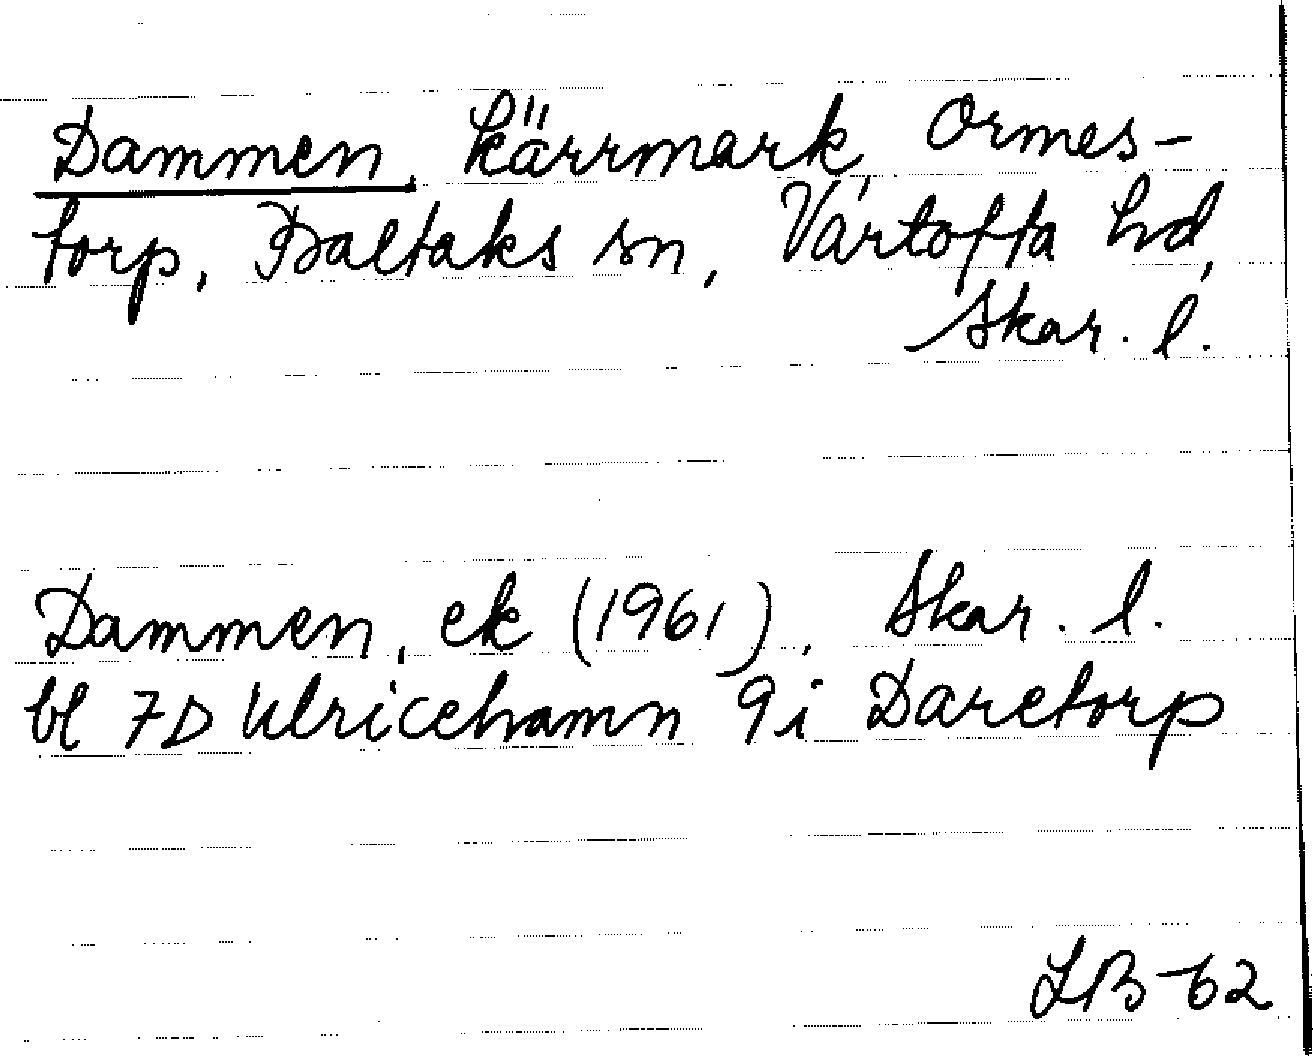 Dammen, kärrmark, Ormes-
torp, Baltaks sn, Vartofta hd,
Skar. l.
Dammen, ek (1961), Skar. l.
bl 7D Ulricehamn 9i Daretorp
LB-62